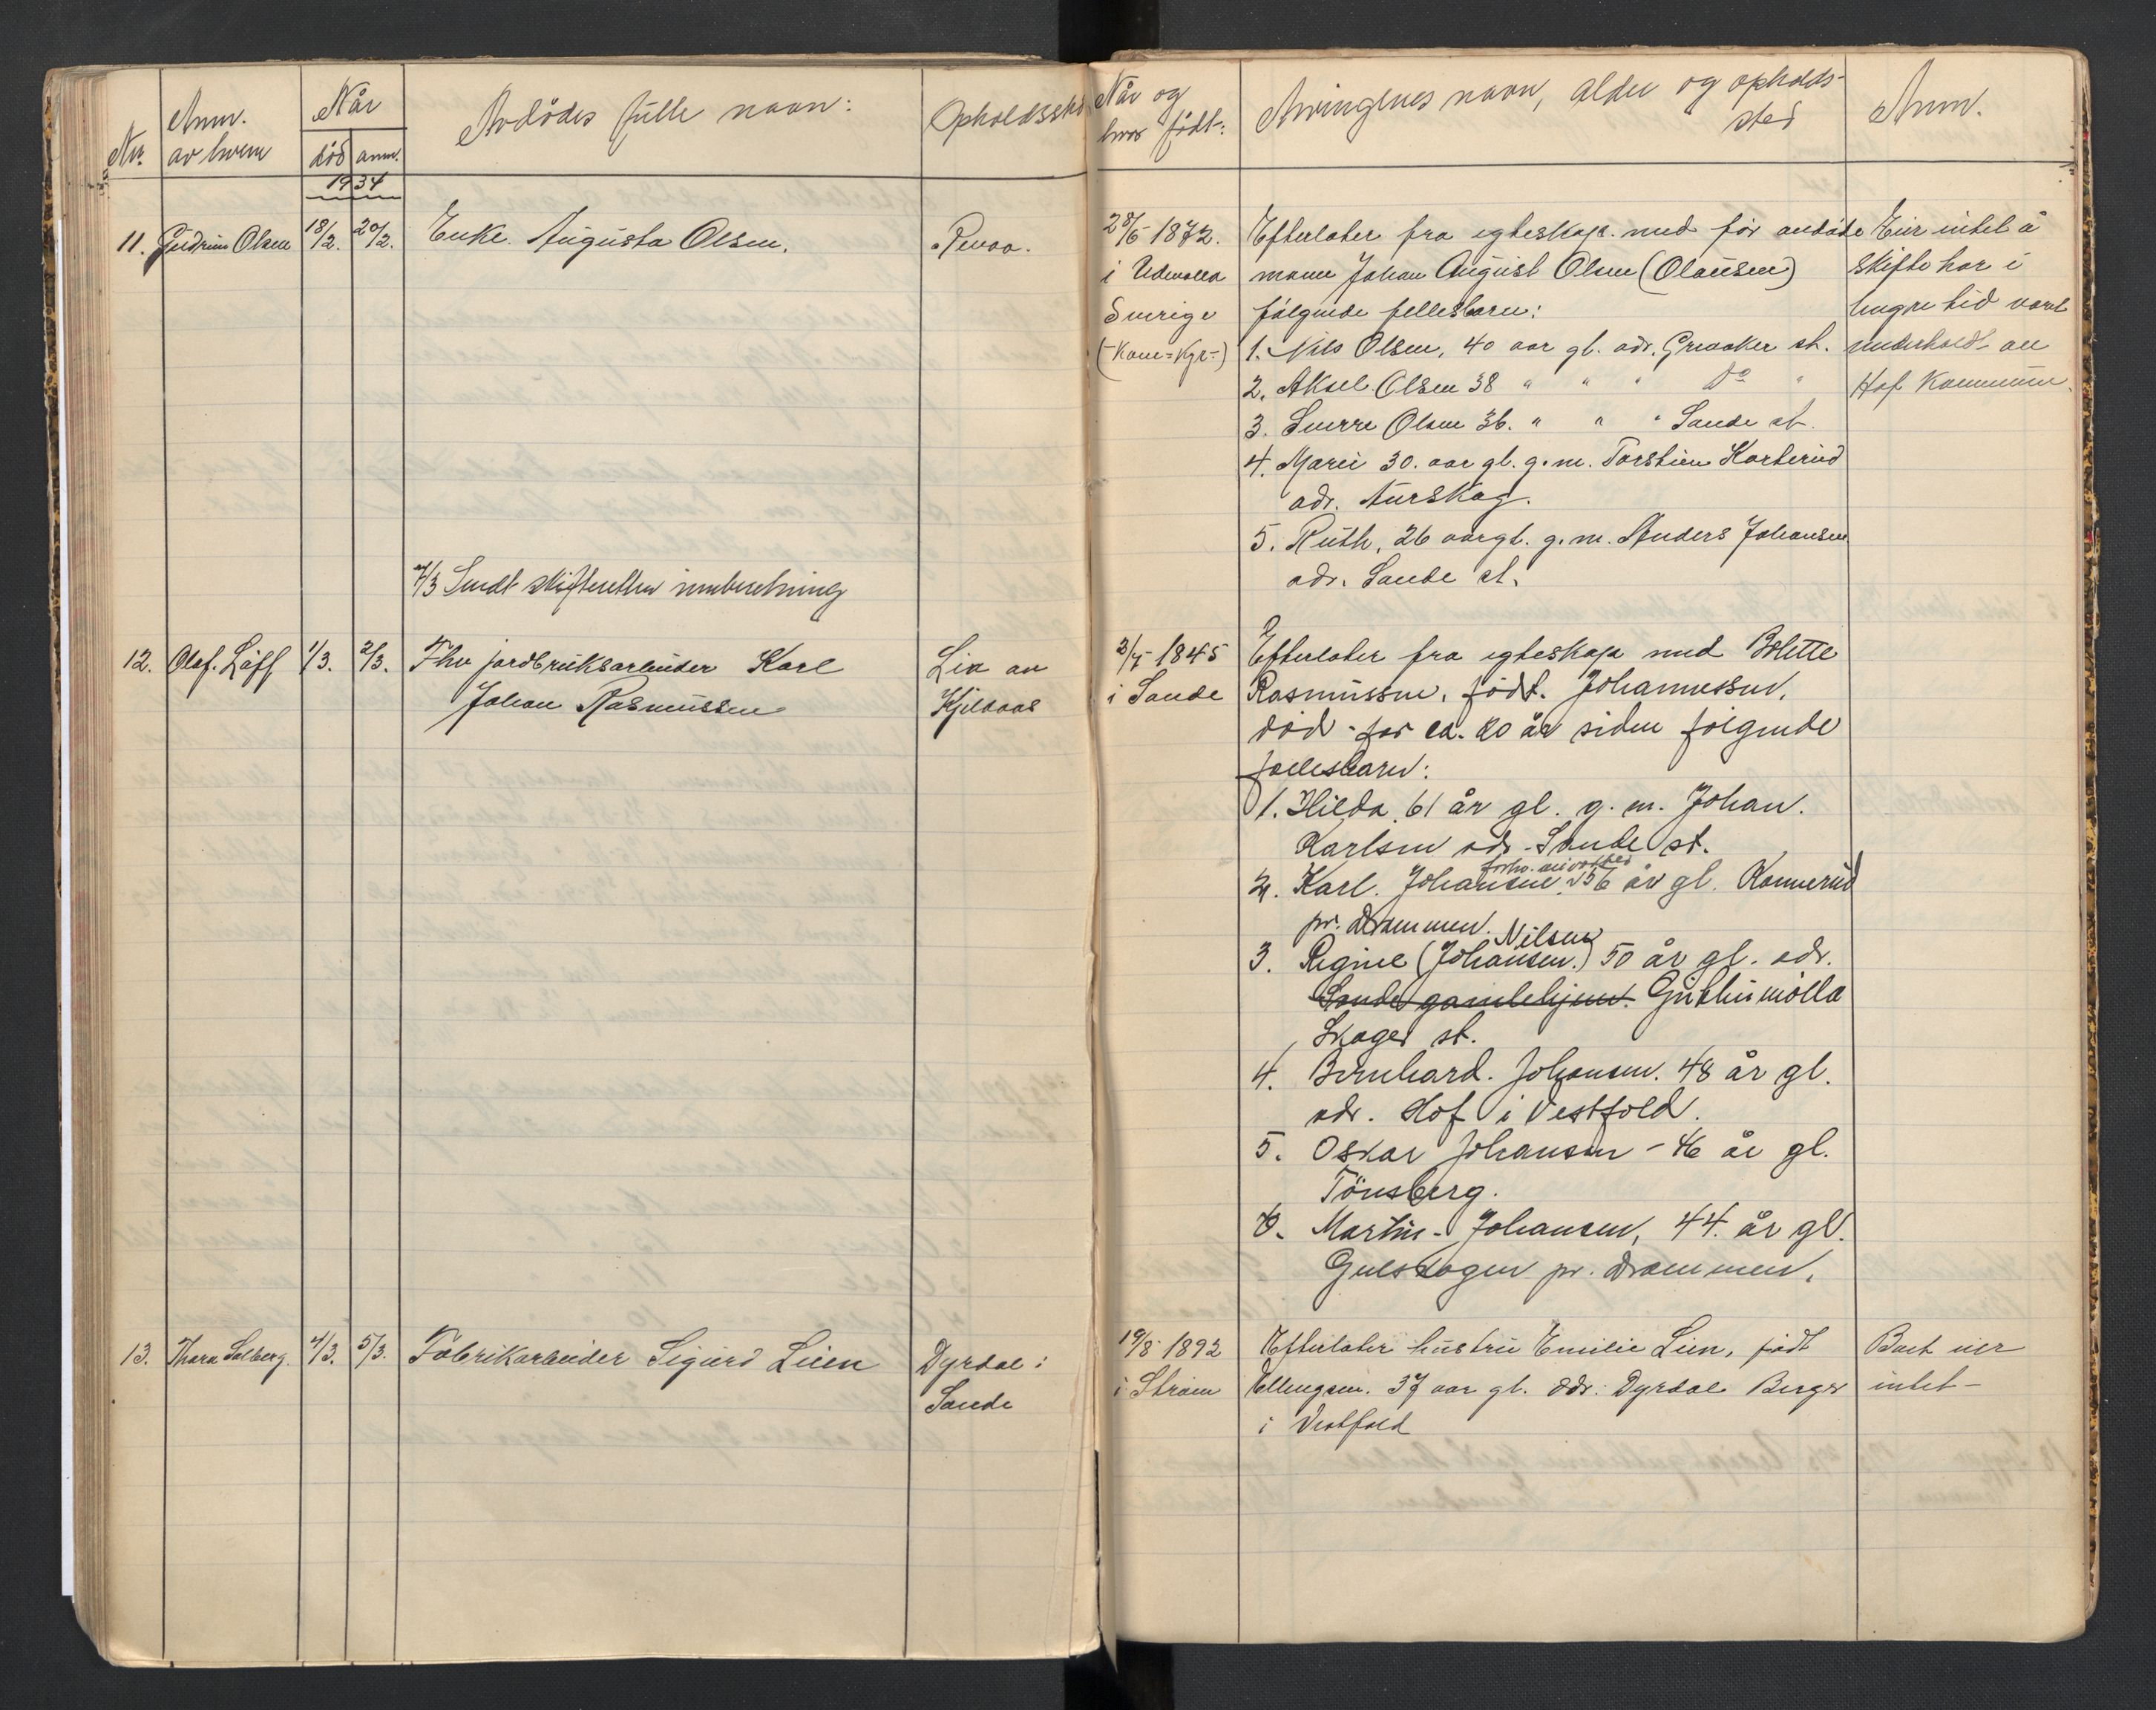 Nr.
Anm. av hvem
Når
død anm.
Avdødes fulle navn:
Opholdssted
Når og hvor født:
Arvingenes navn, alder og opholdssted
Anm.
1934
11. Gudrun Olsen 18/2. 20/2. Enke. Augusta Olsen. Revaa.
28/6 1872.
i Udevalla
Sverige
Efterlater fra egteskap. med før avdøde
mann Johan August Olsen (Olausen)
følgende fellesbarn:
1. Nils Olsen, 40 aar gl. adr. Greaaker st.
2. Aksel Olsen 38 " " " Do "
3. Sverre Olsen 36. " " " Sande st.
4. Marei 30. aar gl. g. m. Torstein Korterud
adr. Aurskog.
5. Ruth, 26 aar gl. g. m. Anders Johansen
adr. Sande st.
Eier intet å
skifte har i
lengre tid vært
underholdt av
Hof Kommune.
7/3 Sendt skifteretten innberetning
12. Olof. Løff 1/3. 2/3. Fhv jordbruksarbeider Karl
Johan Rasmussen
Lia av
Kjeldaas
3/5 1845
i Sande
Efterlater fra egteskap med Bolette
Rasmussen, født. Johannessen,
død for ca. 20 år siden følgende
fellesbarn:
1. Hilda 61 år gl. g. m. Johan.
Karlsen adr. Sande st.
2. Karl. Johansen 56 år gl. Konnerud
pr. Drammen.
Nilsen
3. Regine (Johansen.) 50 år gl. adr.
Sande gamlehjem.
Skoger st.
4. Bernhard. Johansen. 48 år gl.
adr. Hof i Vestfold.
5. Oskar Johansen - 46 år gl.
Tønsberg.
6. Martin - Johansen, 44. år gl.
Gulskogen pr. Drammen.
13. Thora Solberg. 4/3. 5/3. Fabrikarbeider Sigurd Lien
Dyrdal i
Sande
19/8 1892
i Strøm
Efterlater hustru Emilie Lien, født
Ellingsen. 37 aar gl. adr: Dyrdal Berger
i Vestfold
Boet eier
intet -